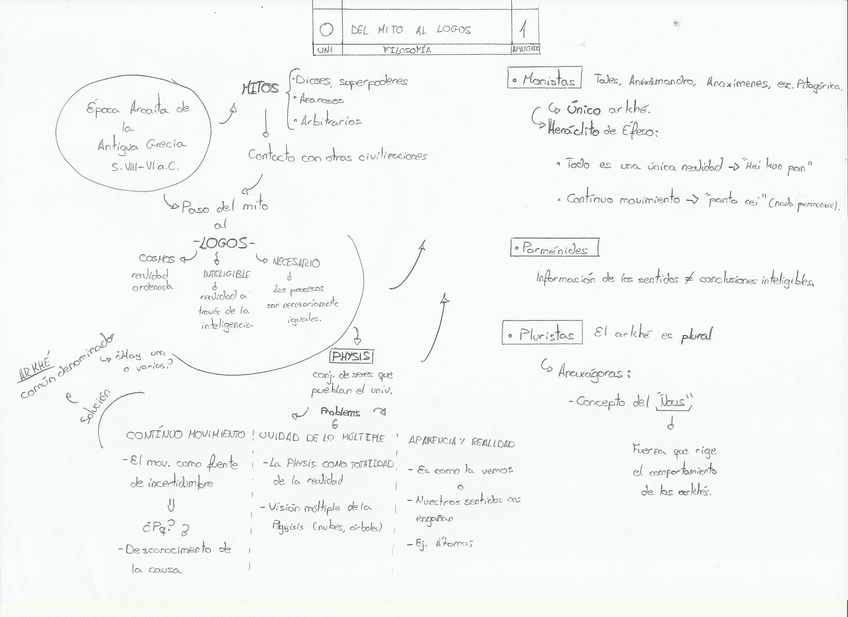 O DEL MITO AL LOGOS 1
UNI FILOSOFÍA APARTADO
Época Arcaica de
la
Antigua Grecia
S.VIII-VI a.C.
MITOS
· Dioses, superpoderes
· Azarosos
· Arbitrarios
Contacto con otras civilizaciones
Paso del mito
al
-LOGOS-
COSMOS
realidad
ordenada
INTELIGIBLE
realidad a
través de la
inteligencia
NECESARIO
Los procesos
son necesariamente
iguales.
ARKHÉ
común denominador
¿Hay uno
o varios?
Solución
PHYSIS
conj. de seres que
pueblan el univ.
Problems
CONTÍNUO MOVIMIENTO
- El mov. como fuente
de incertidumbre
¿Pq?
- Desconocimiento de
la causa
UNIDAD DE LO MÚLTIPLE
- La PHYSIS COMO TOTALIDAD
de la realidad
- Visión múltiple de la
Physis (nubes, árboles)
APARIENCIA Y REALIDAD
- Es como la vemos
o
- Nuestros sentidos nos
engañan
- Ej. Átomos
· Monistas Tales, Anaximandro, Anaxímenes, esc. Pitagórica.
Único arkhé.
Heráclito de Éfeso:
· Todo es una única realidad → "Hei kan pan"
· Contínuo movimiento → "panta rei" (nada permanece).
· Parménides
Información de los sentidos ≠ conclusiones inteligibles.
· Pluristas El arkhé es plural
Anaxágoras:
- Concepto del "Nous"
Fuerza que rige
el comportamiento
de los arkhés.